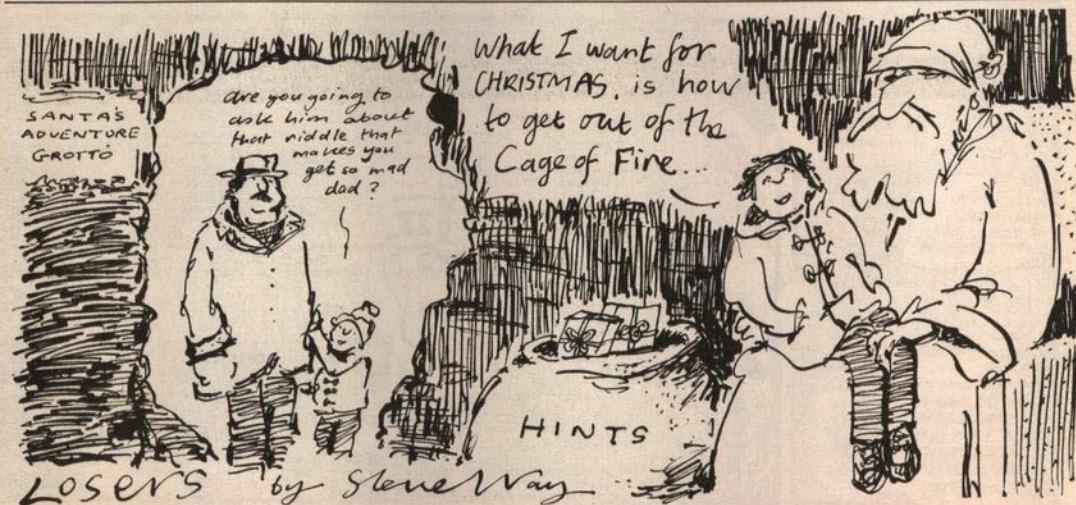 SANTA'S
ADVENTURE
GROTTO
are you going to
ask him about
that riddle that
makes you
get so mad
dad?
What I want for
CHRISTMAS, is how
to get out of the
Cage of Fire...
HINTS
Losers by Steve Way